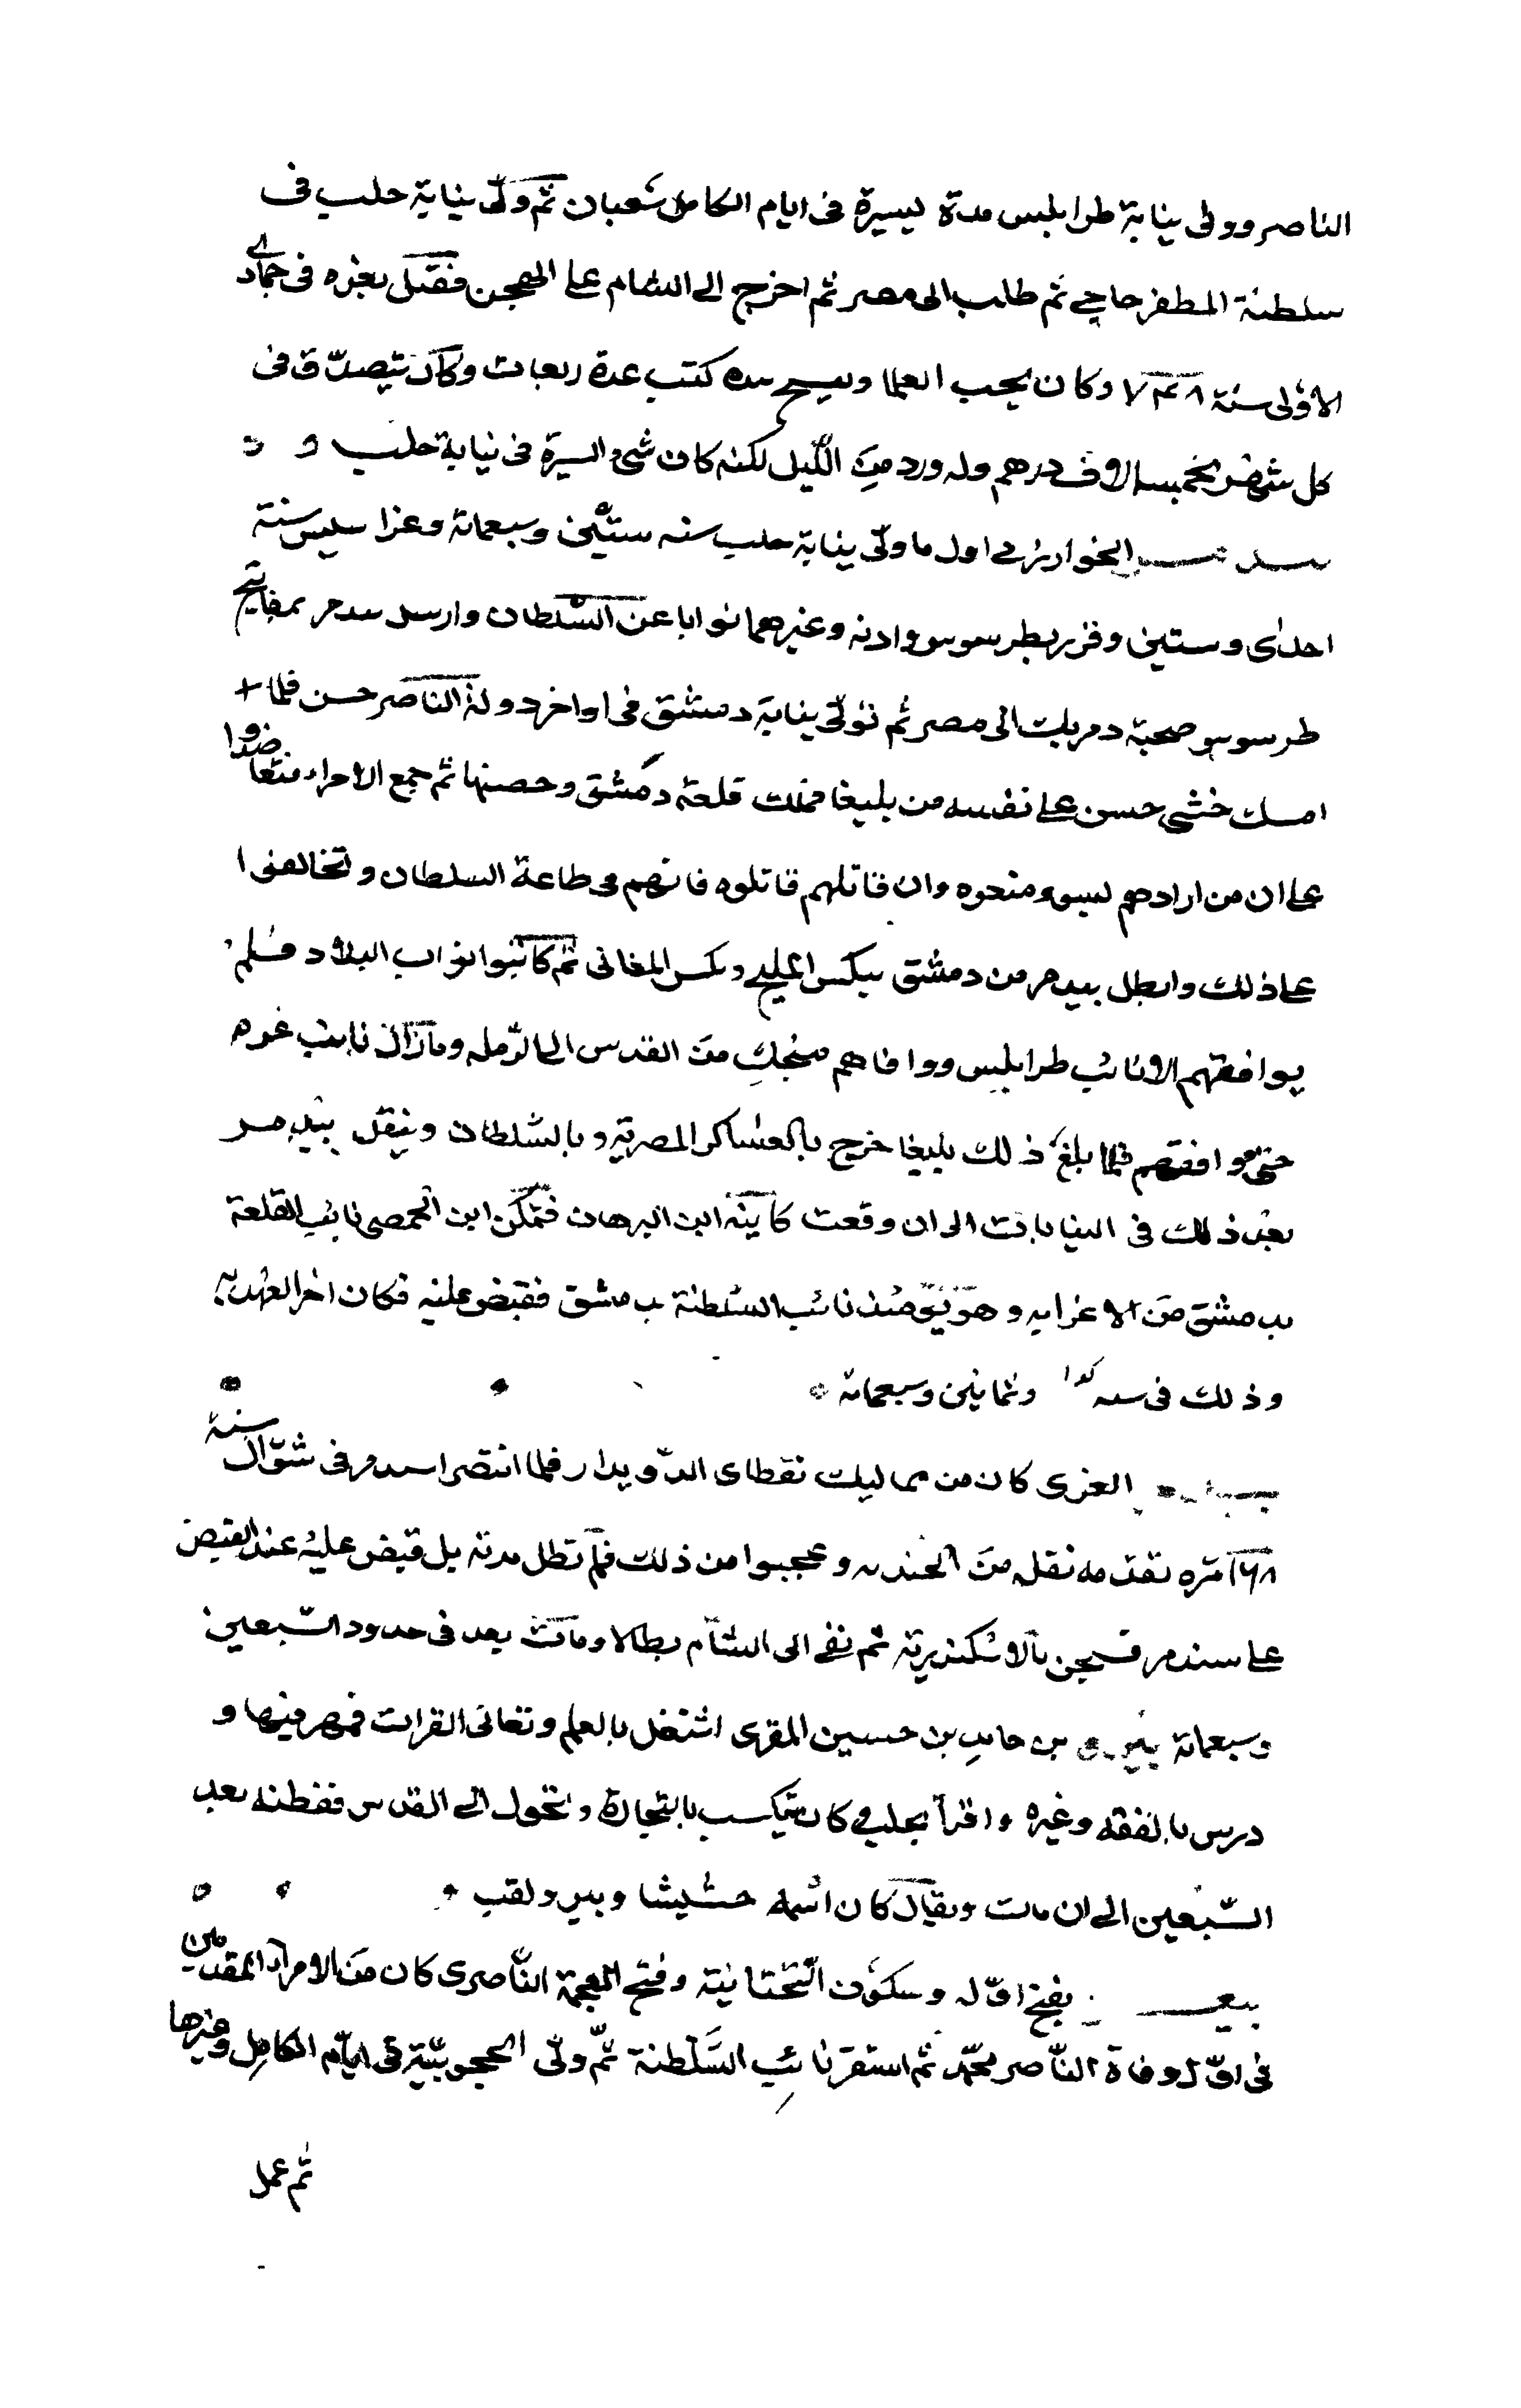 الناصر وولى نيابة طرابلس مدة يسيرة فى ايام الكامل شعبان ثم ولى نيابة حلب فى
سلطنة المظفر حاجى ثم طلب الى مصر ثم اخرج الى الشام على الهجن فقتل بغزه فى جمادى
الاولى سنة ٧٤٨ وكان يحب العلما و كتب عدة ربعات وكان يتصدق فى
كل شهر بخمسة الاف درهم وله ورد من الليل لكنه كان سئ السيرة فى نيابة حلب
الخوارزمى اول ما ولى نيابة حلب سنه ستين وسبعمائة وغزا سيس سنة
احدى وستين وقرر بطرسوس وادنه وغيرهما نوابا عن السلطان وارسل بيدمر بمفاتيح
طرسوس صحبة دمرباى الى مصر ثم تولى نيابة دمشق فى اواخر دولة الناصر حسن فلما
امسك خشى حسن على نفسه من يلبغا فملك قلعة دمشق وحصنها ثم جمع الامراء فتعاضدوا
على ان من ارادهم بسوء منعوه وان قاتلهم قاتلوه فانهم فى طاعة السلطان وتحالفوا
على ذلك وابطل بيدمر من دمشق مكس الملح ومكس المغانى ثم كاتبوا نواب البلاد فلم
يوافقهم الا نائب طرابلس ووافاهم منجك من القدس الى الرمله وما زال نائب غزه
حتى وافقهم فلما بلغ ذلك يلبغا خرج بالعساكر المصرية وبالسلطان وتنقل بيدمر
بعد ذلك فى النيابات الى ان وقعت كاينة ابن البرهان فتمكن ابن الحمصى نائب القلعة
بدمشق من الاغرا به وهو يومئذ نائب السلطنة بدمشق فقبض عليه فكان اخر العهد به
وذلك فى سنه كذا وثمانين وسبعمائة
العزى كان من مماليك نقطاى الدويدار فلما انتصر اسندمر فى شوال سنة
٧٦٨ امره تقدمه نقل من الجنديه وعجبوا من ذلك فلم تطل مدته بل قبض عليه عند القبض
على اسندمر فسجن بالاسكندرية ثم نفى الى الشام بطالا ومات بعد فى حدود السبعين
وسبعمائة بن حامد بن حسين المقرى اشتغل بالعلم وتعانى القراات فمهر فيها و
درس بالفقه وغيره واقرأ بحلب وكان يتكسب بالتجارة وتحول الى القدس فقطنه بعد
السبعين الى ان مات ويقال كان اسمه حشيشا وبيرو لقب
بفتح اوله وسكون التحتانية وفتح المعجمة الناصرى كان من الامراء المقدمين
فى اول وفاة الناصر محمد ثم استقر نائب السلطنة ثم ولى الحجوبية فى ايام الكامل وغيرها
ثم عمل